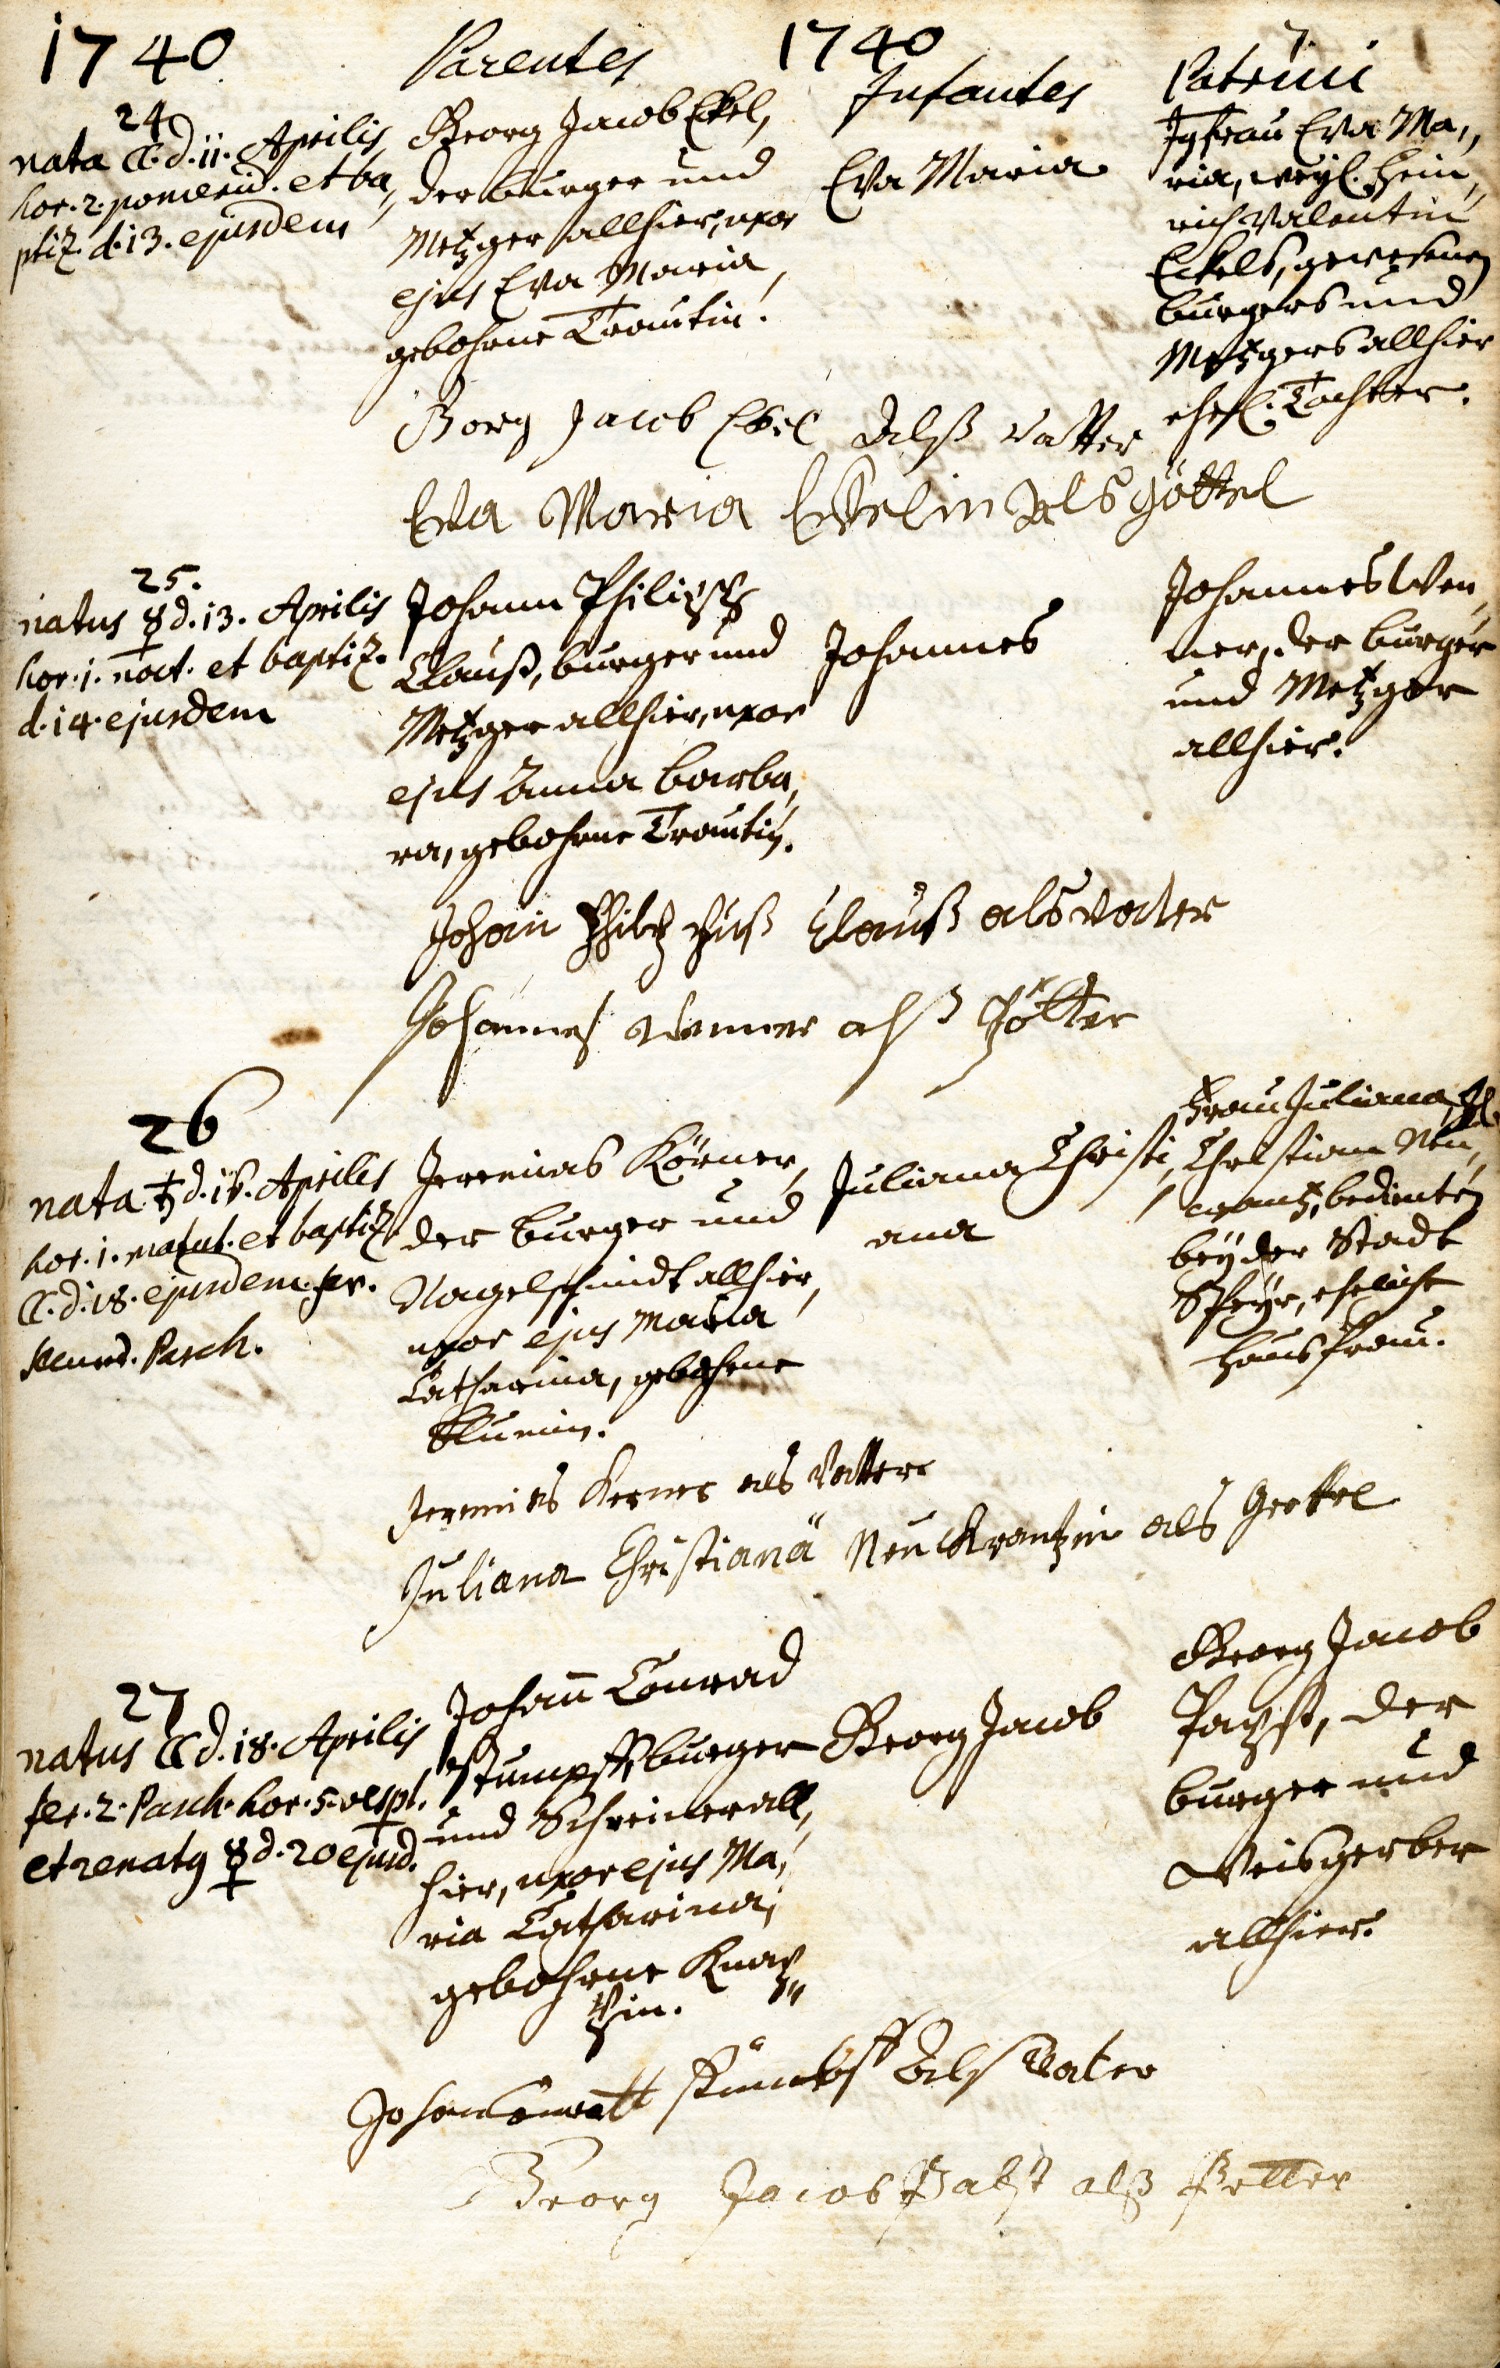 1740
Parentes
1740
Infantes
Patrini
24
nata ☾. d. 11. Aprilis
hor. 2. pomerid. et ba,
ptiz. d. 13. ejusdem
Georg Jacob Eckel,
der burger und
Metzger allhier, uxor
ejus Eva Maria,
gebohrne Trautin.
Eva Maria
Jgfrau Eva Ma,
ria, weyl. Hein,
rich Valentin
Eckels, gewesenen
burgers und
Metzgers allhier
ehel. Tochter.
Gorg Jacob Ekel Alß Vatter
Eva Maria Eckelin Als göttel
25.
natus ☿ d. 13. Aprilis
hor. 1. noct. et baptiz.
d. 14. ejusdem
Johann Philipps
Clauß, burger und
Metzger allhier, uxor
ejus Anna Barba,
ra, gebohrne Trautin.
Johannes
Johannes Wen,
ner, der burger
und Metzger
allhier.
Johan Clauß als vater
Johannes Wenner alß Pötter
26
nata ♄ d. 16. Aprilis
hor. 1. matut. et baptiz
☾. d. 18. ejusdem fer.
secund. Pasch.
Jeremias Körner,
der burger und
Nagelschmidt allhier,
uxor ejus Maria
Catharina, gebohrne
Blumin.
Juliana Christi,
ana
Frau Juliana, H.
Christian Neu,
crantz, bedienten
bey der Stadt
Speyer, eheliche
Hausfrau.
Jeremias Kerner als Vatter
Juliana Christiana Neuckrantzin als Gettel
27
natus ☾ d. 18. Aprilis
fer. 2. Pasch. hor. 5. vesp.
et renatg ☿ d. 20 ejusd.
Johann Conrad
Stumpff, burger
und Schreiner all,
hier, uxor ejus Ma,
ria Catharina,
gebohrne Knap,,
pin.
Georg Jacob
Georg Jacob
Papst, der
burger und
Weisgerber
allhier.
Johan Conratt Stumbff Als Vater
Georg Jacob Pabst alß Petter